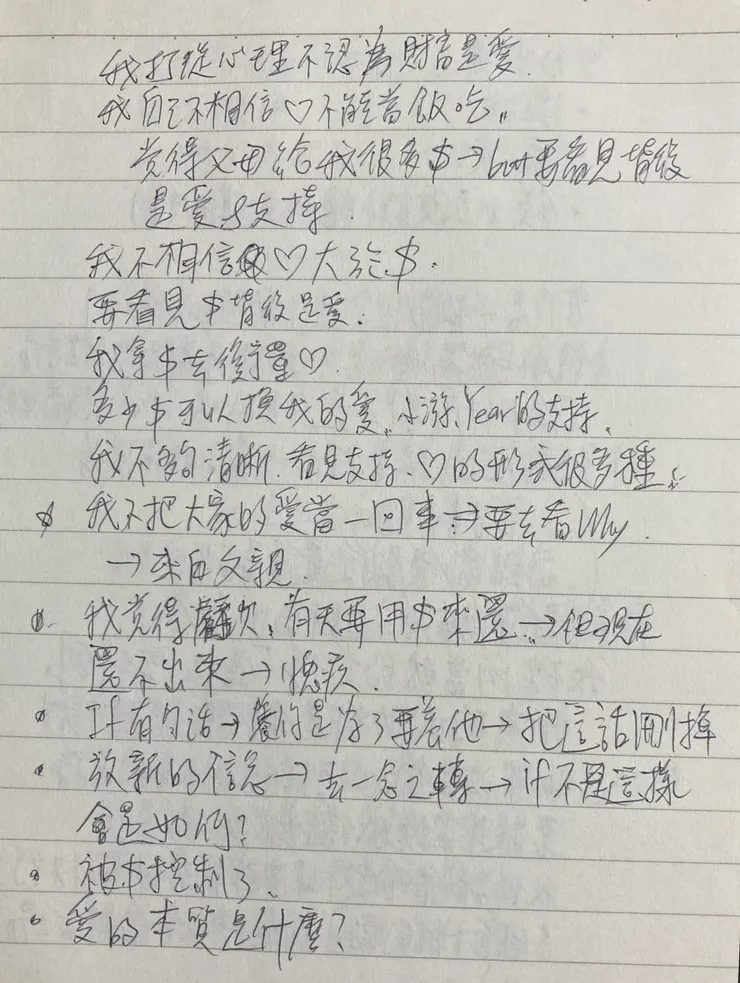 我打從心理不認為財富是愛.
我自己不相信♡不能當飯吃。
覚得父母給我很多$→but要看見背後
是愛&支持.
我不相信♡大於$.
要看見$背後是愛.
我拿$去衡量♡.
多少$可以換我的愛、小游、Year的支持.
我不夠清晰.看見支持、♡的形式很多種。
我不把大家的愛當一回事→要去看Why.
→來自父親.
我覚得虧欠,有天要用$來還.→但現在
還不出來→愧疚.
If有句話→養你是為了要養他→把這話刪掉
放新的信念→去一念之轉→if不是這樣
會是如何?
被$控制了.
愛的本質是什麼?